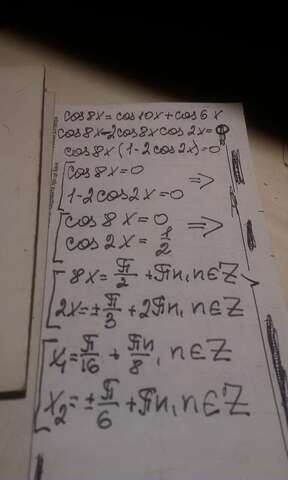 cos8x=cos10x+cos6x
cos8x-2cos8xcos2x=0
cos8x(1-2cos2x)=0
cos8x=0
1-2cos2x=0 =>
cos8x=0
cos2x=1/2 =>
8x=π/2+πn, n∈Z
2x=±π/3+2πn, n∈Z
x₁=π/16+πn/8, n∈Z
x₂=±π/6+πn, n∈Z